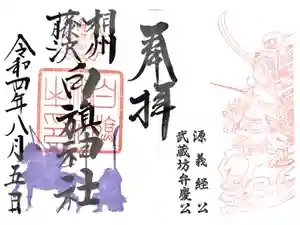 奉拝
源義経公
武蔵坊弁慶公
相州
藤沢
白旗神社
令和四年八月五日